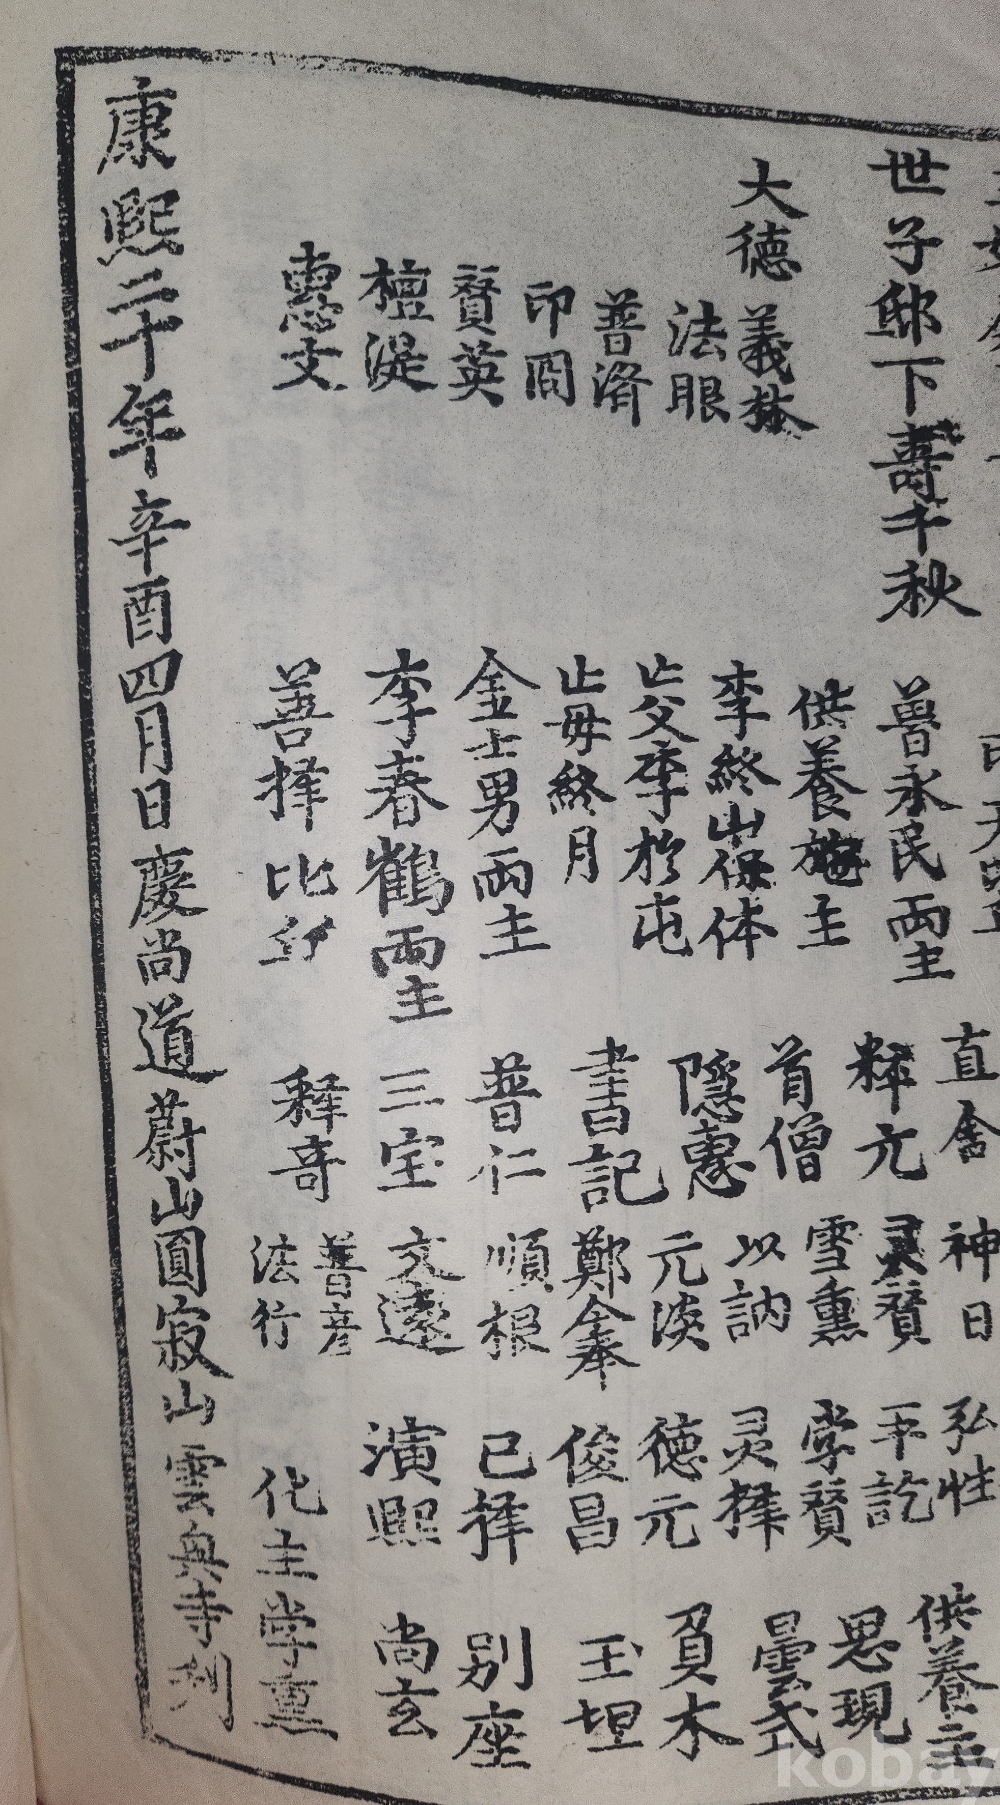 世子邸下壽千秋
大德 義森
法眼
普済
印冏
賛英
檀湜
惠文
曽永民兩主
供養施主
李終山保体
亡父李於屯
亡母終月
金士男兩主
李春鶴兩主
善択 比丘
直舍 神日 弘性 供養主
釈元 灵賛 平訖 思現
首僧 雪熏 学賛 曇式
隱惠 以訥 灵択 負木
書記 元淡 德元 玉坦
普仁 鄭金奉 俊昌 別座
三宝 順根 已択 尚玄
釋奇 文遠 演熙
普彦
法行
化主学熏
康熙二十年辛酉四月日慶尚道蔚山圓寂山雲興寺刊
kobay